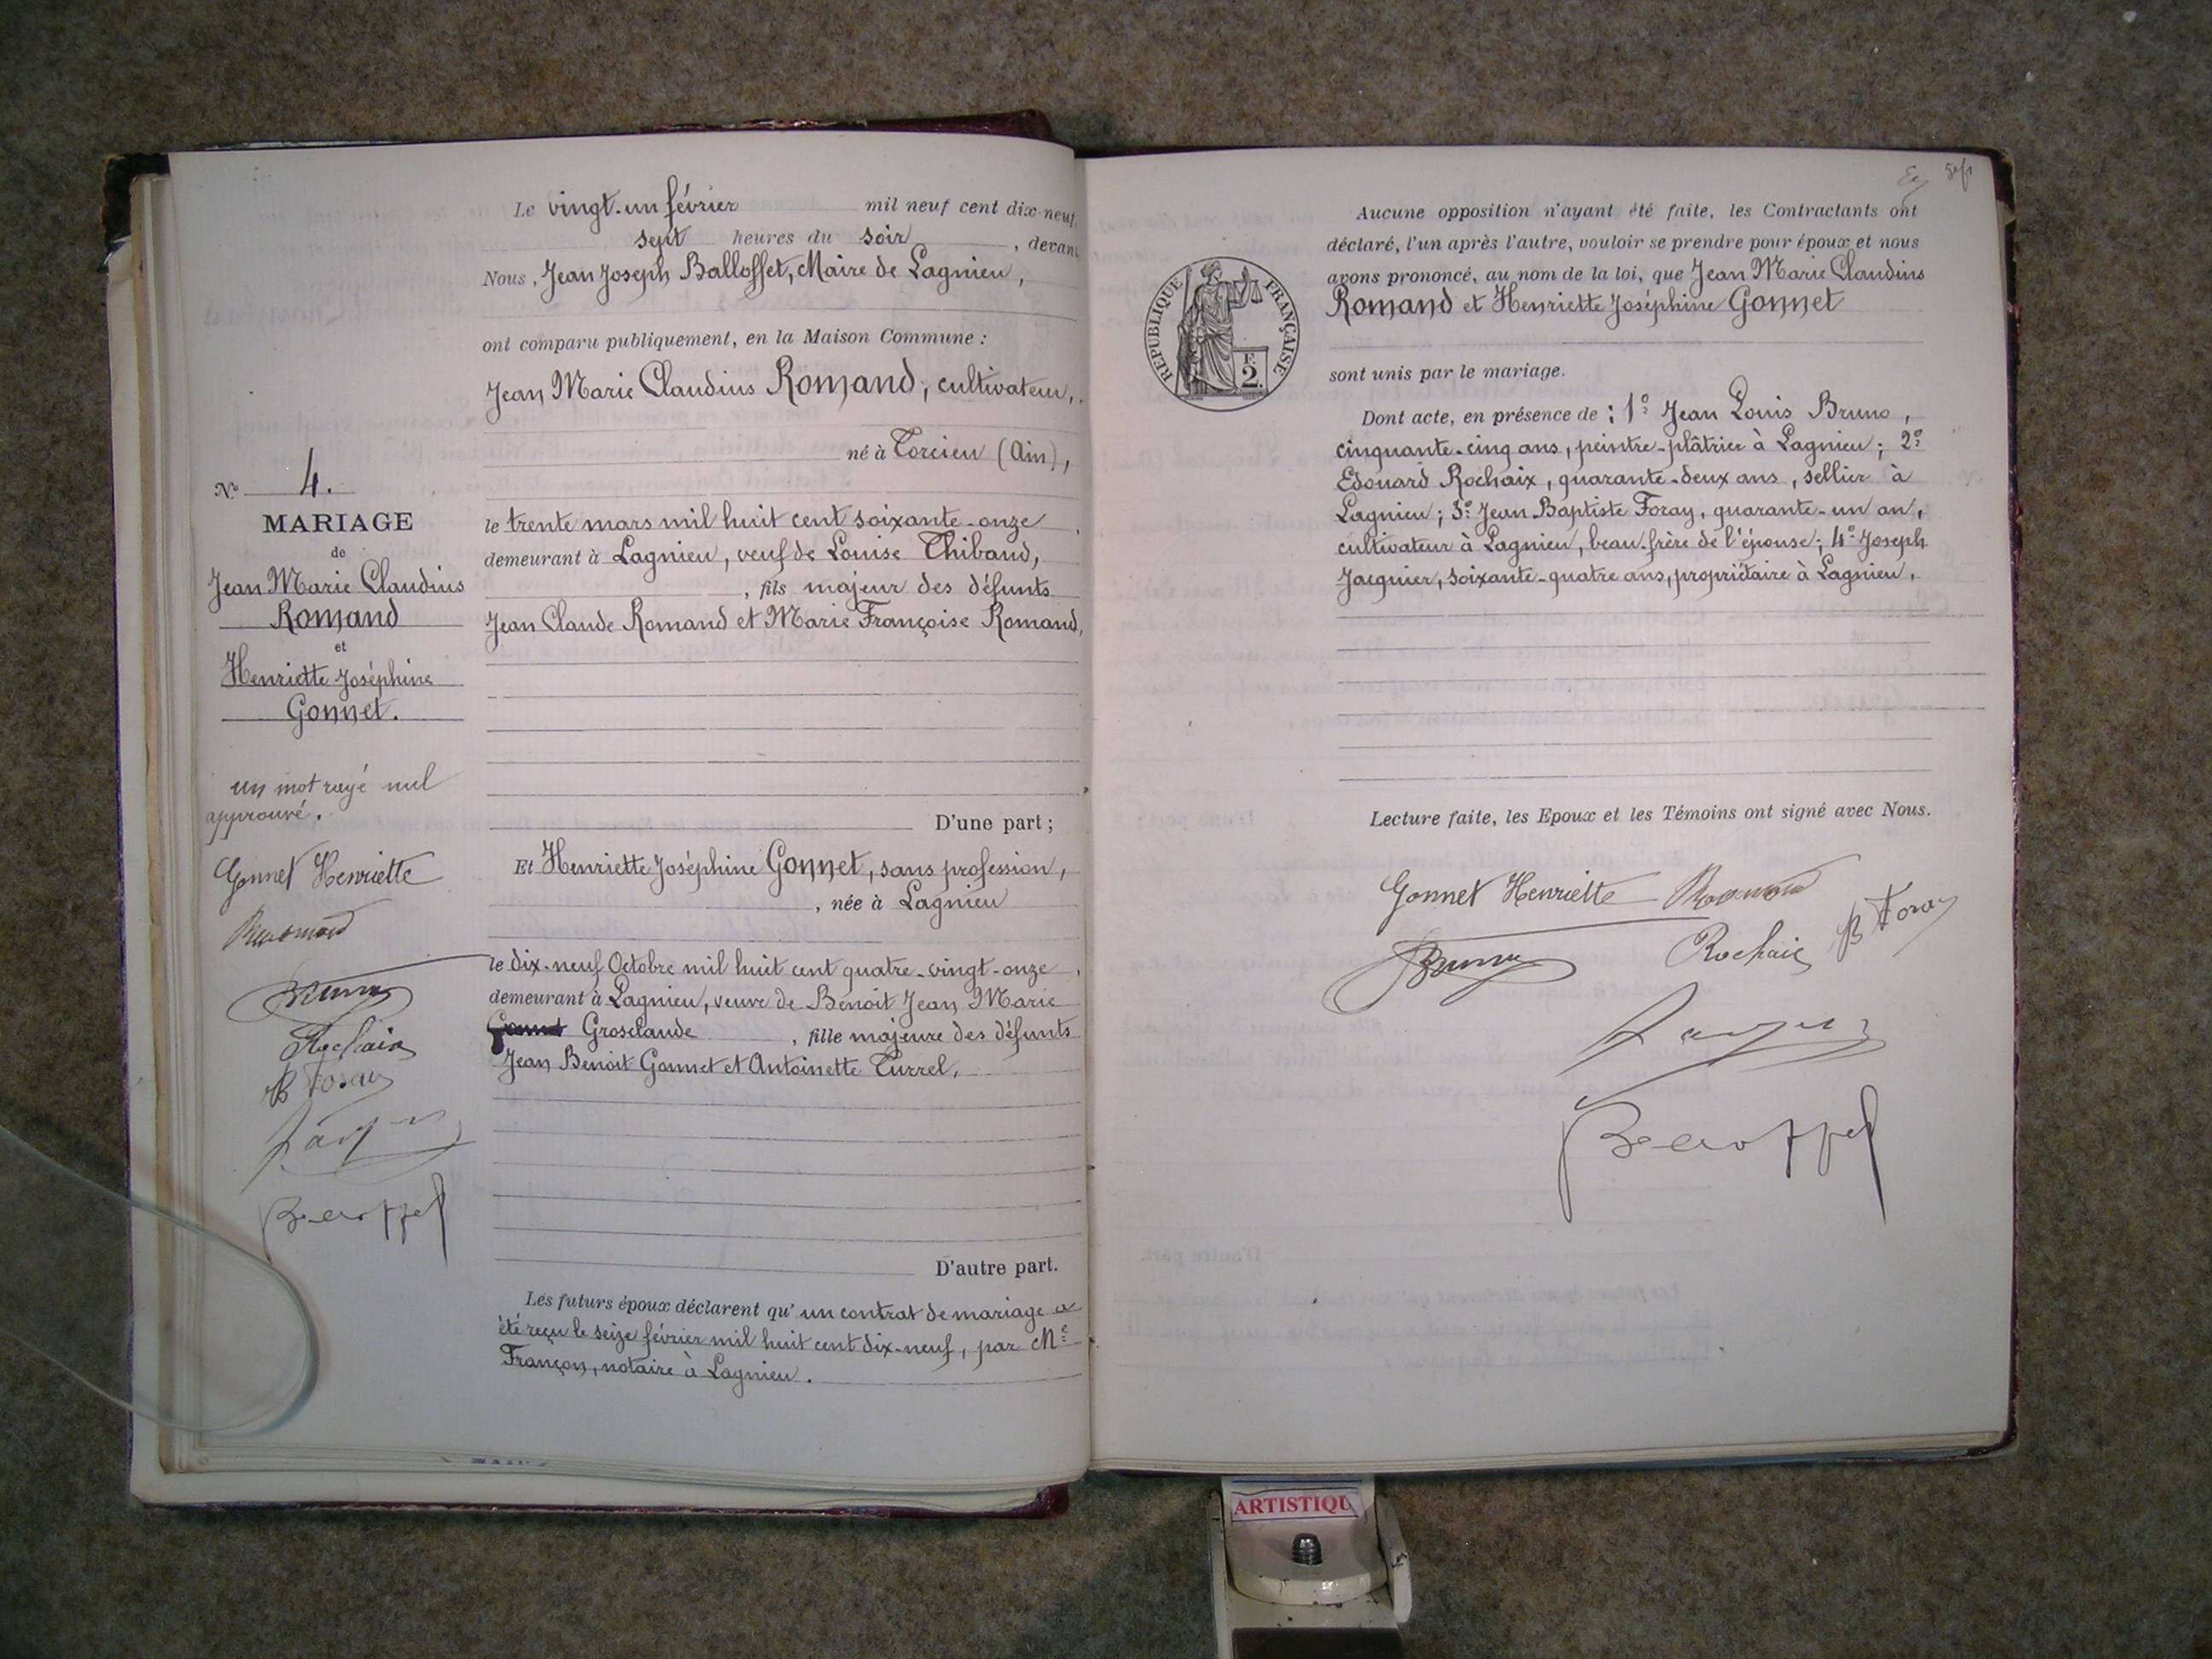 Le vingt-un février mil neuf cent dix-neuf
sept heures du soir, devant
Nous, Jean Joseph Balloffet, Maire de Lagnieu,
ont comparu publiquement, en la Maison Commune :
Jean Marie Claudius Romand, cultivateur,
né à Torcieu (Ain),
le trente mars mil huit cent soixante-onze,
demeurant à Lagnieu, veuf de Louise Thibaud,
, fils majeur des défunts
Jean Claude Romand et Marie Françoise Romand,
D'une part ;
Et Henriette Joséphine Gonnet, sans profession,
, née à Lagnieu
le dix-neuf Octobre mil huit cent quatre-vingt-onze,
demeurant à Lagnieu, veuve de Benoit Jean Marie
Grosclaude, fille majeure des défunts
Jean Benoit Gonnet et Antoinette Turrel,
D'autre part.
Les futurs époux déclarent qu'un contrat de mariage a
été reçu le seize février mil huit cent dix-neuf, par Me
Françon, notaire à Lagnieu.
No 4.
MARIAGE
de
Jean Marie Claudius
Romand
et
Henriette Joséphine
Gonnet.
un mot rayé nul
approuvé.
Gonnet Henriette
Romand
Bruno
Rochaix
B Foray
Aucune opposition n'ayant été faite, les Contractants ont
déclaré, l'un après l'autre, vouloir se prendre pour époux et nous
avons prononcé, au nom de la loi, que Jean Marie Claudius
Romand et Henriette Joséphine Gonnet
sont unis par le mariage.
Dont acte, en présence de : 1o Jean Louis Bruno,
cinquante-cinq ans, peintre-plâtrier à Lagnieu ; 2o
Edouard Rochaix, quarante-deux ans, sellier à
Lagnieu ; 3o Jean Baptiste Foray, quarante-un an,
cultivateur à Lagnieu, beau-frère de l'épouse ; 4o Joseph
Jacquier, soixante-quatre ans, propriétaire à Lagnieu,
Lecture faite, les Epoux et les Témoins ont signé avec Nous.
Gonnet Henriette Romand
Bruno Rochaix B Foray
REPUBLIQUE FRANÇAISE
F.
2.
ARTISTIQU